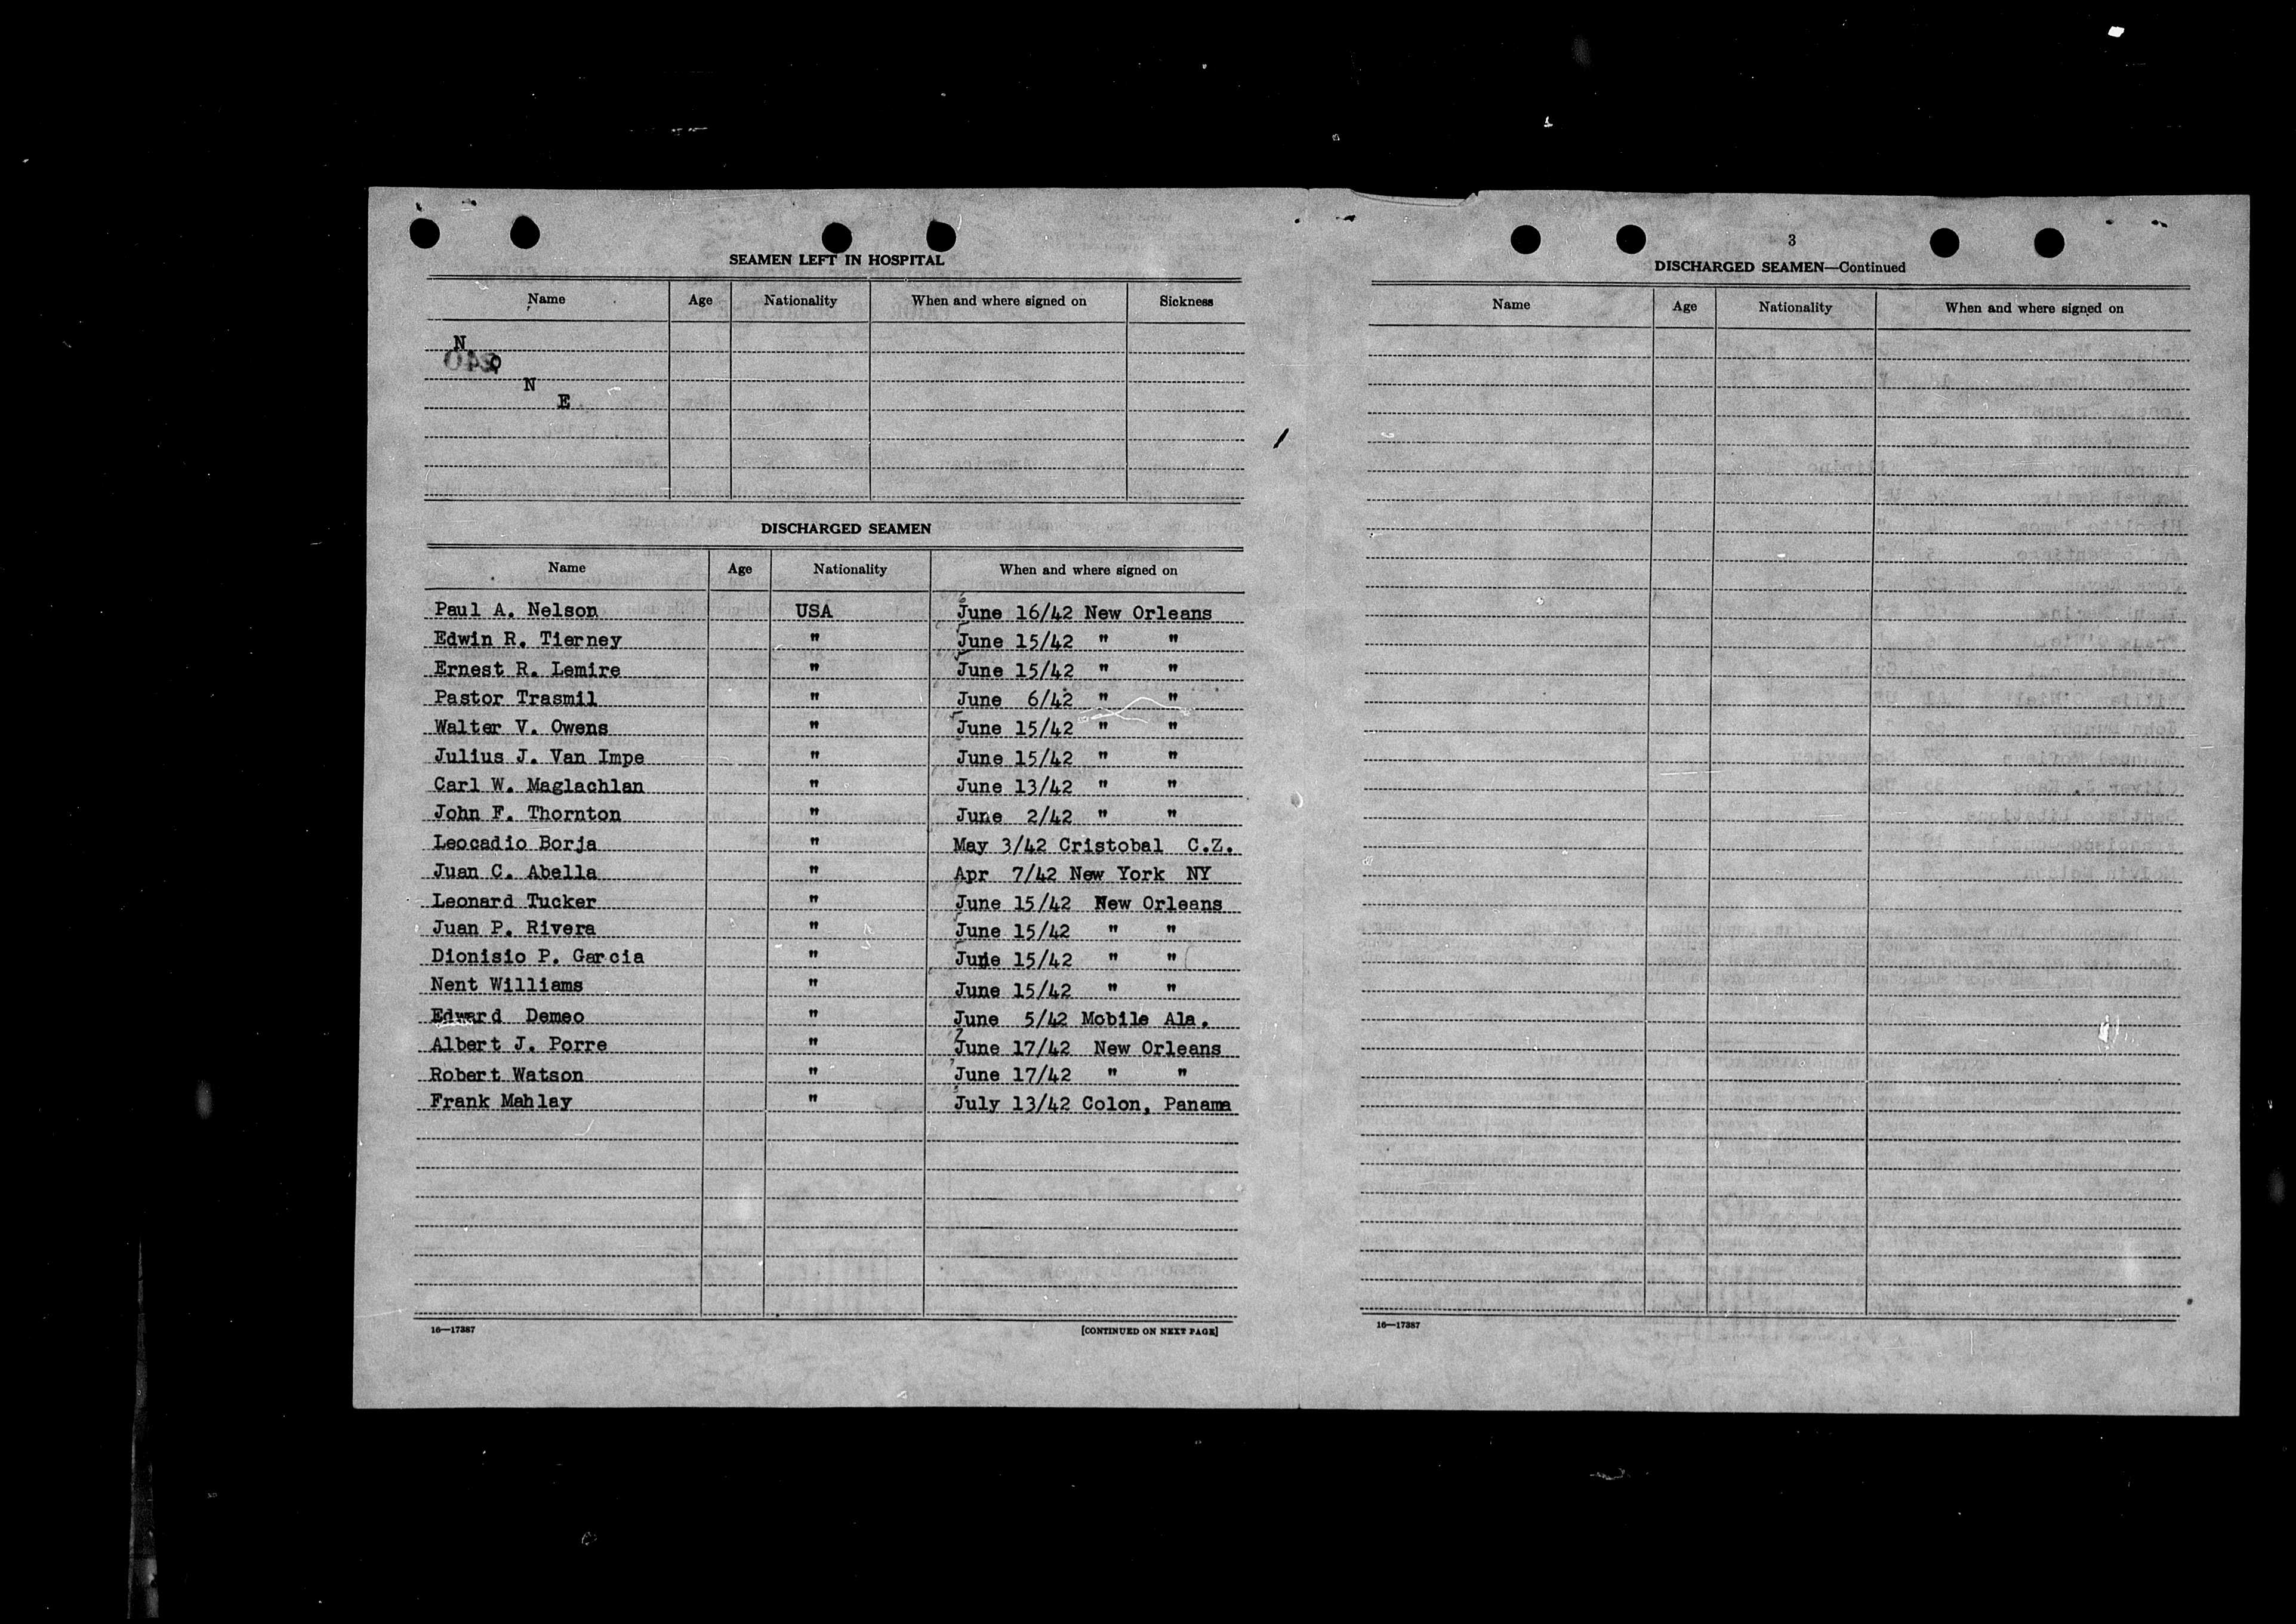 SEAMEN LEFT IN HOSPITAL
Name Age Nationality When and where signed on Sickness
N
O
N
E
DISCHARGED SEAMEN
Name Age Nationality When and where signed on
Paul A. Nelson USA June 16/42 New Orleans
Edwin R. Tierney " June 15/42 " "
Ernest R. Lemire " June 15/42 " "
Pastor Trasmil " June 6/42 " "
Walter V. Owens " June 15/42 " "
Julius J. Van Impe " June 15/42 " "
Carl W. Maglachlan " June 13/42 " "
John F. Thornton " June 2/42 " "
Leocadio Borja " May 3/42 Cristobal C.Z.
Juan C. Abella " Apr 7/42 New York NY
Leonard Tucker " June 15/42 New Orleans
Juan P. Rivera " June 15/42 " "
Dionisio P. Garcia " June 15/42 " "
Nent Williams " June 15/42 " "
Edward Demeo " June 5/42 Mobile Ala.
Albert J. Porre " June 17/42 New Orleans
Robert Watson " June 17/42 " "
Frank Mahlay " July 13/42 Colon, Panama
16—17387 [CONTINUED ON NEXT PAGE]
3
DISCHARGED SEAMEN—Continued
Name Age Nationality When and where signed on
16—17387